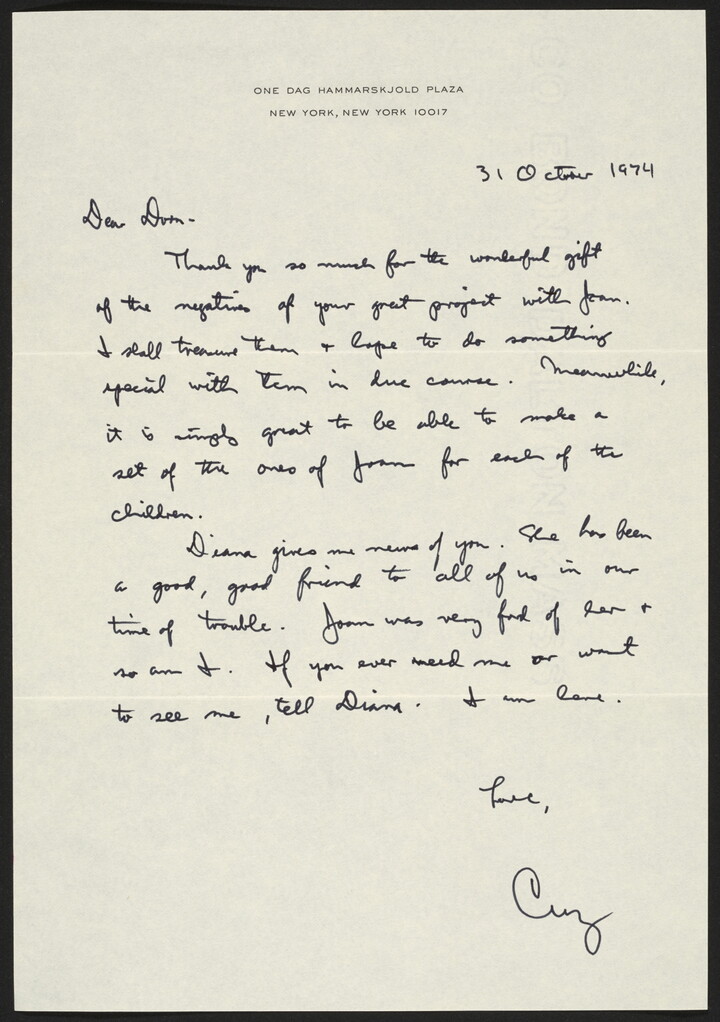 ONE DAG HAMMARSKJOLD PLAZA
NEW YORK, NEW YORK 10017
31 October 1974
Dear
Thank you so much for the wonderful gift
of the negatives of your great project with Joan.
I shall treasure them + hope to do something
special with them in due course. Meanwhile,
it is simply great to be able to make a
set of the ones of Joan for each of the
children.
Diana gives me news of you. She has been
a good, good friend to all of us in our
time of trouble. Joan was very fond of her +
so am I. If you ever need me or want
to see me, tell Diana. I am here.
Love,